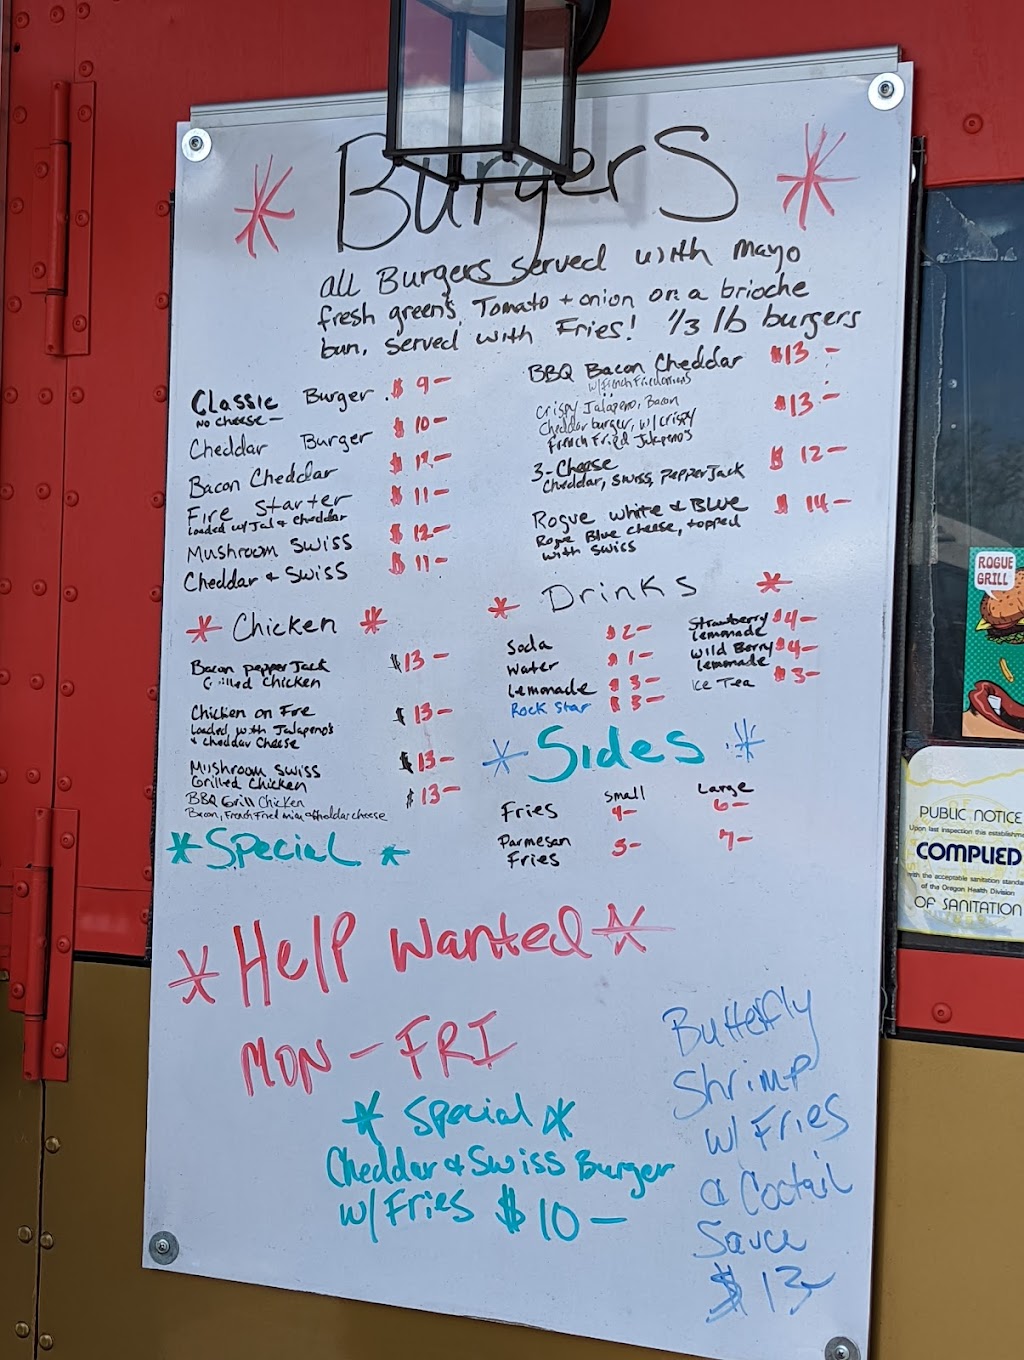 BurgerS
all Burgers served with mayo
fresh greens, Tomato + onion on a brioche
bun, served with Fries! 1/3 lb burgers
Classic Burger . $ 9 -
NO CHEESE -
Cheddar Burger $ 10 -
Bacon Cheddar $ 12 -
Fire Starter $ 11 -
Loaded w/ Jal & Cheddar
Mushroom Swiss $ 12 -
Cheddar & Swiss $ 11 -
BBQ Bacon Cheddar $13 -
w/ French Fried onions
Crispy Jalapeno, Bacon $13 -
Cheddar burger, w/ crispy
French Fried Jalapenos
3-Cheese $ 12 -
Cheddar, Swiss, Pepper Jack
Rogue White & Blue $ 14 -
Rogue Blue Cheese, topped
with Swiss
Chicken
Bacon Pepper Jack $13 -
Grilled Chicken
Chicken on Fire $13 -
Loaded with Jalapeno's
& Cheddar Cheese
Mushroom Swiss $13 -
Grilled Chicken
BBQ Grill Chicken $13 -
Bacon, French Fried & cheddar cheese
Drinks
Soda $ 2 -
Water $ 1 -
Lemonade $ 3 -
Rock Star $ 3 -
Strawberry $4 -
Lemonade
Wild Berry $4 -
Lemonade
Ice Tea $3 -
Sides
Small Large
Fries 4 - 6 -
Parmesan 5 - 7 -
Fries
Special
Help Wanted
MON - FRI
Special
Cheddar & Swiss Burger
w/ Fries $ 10 -
Butterfly
Shrimp
w/ Fries
& Coctail
Sauce
$ 13 -
ROGUE
GRILL
PUBLIC NOTICE
Upon last inspection this establishme
COMPLIED
with the acceptable sanitation standa
of the Oregon Health Division
OF SANITATION